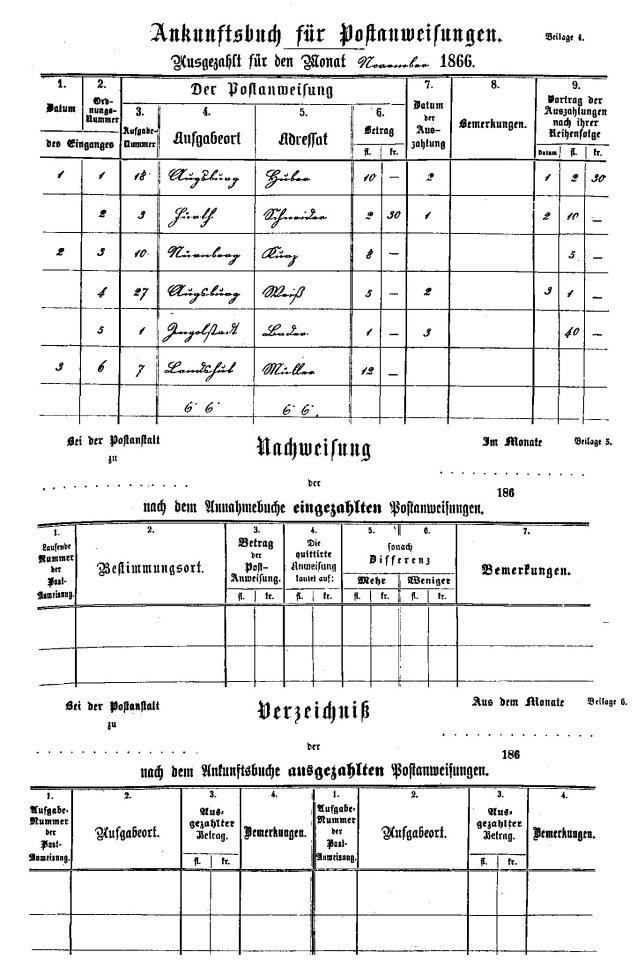 Ankunftsbuch für Postanweisungen.
Beilage 4.
Ausgezahlt für den Monat November 1866.
1. 2. Der Postanweisung 7. 8. 9.
Datum Ordnungs-Nummer 3. 4. 5. 6. Datum der Auszahlung Bemerkungen. Vortrag der Auszahlungen nach ihrer Reihenfolge
des Einganges Aufgabe-Nummer Aufgabeort Adressat Betrag
fl. kr. Datum fl. kr.
1 1 18 Augsburg Huber 10 — 2 1 2 30
2 3 Fürth Schneider 2 30 1 2 10 —
2 3 10 Nürnberg Kurz 8 — 5 —
4 27 Augsburg Weiß 5 — 2 3 1 —
5 1 Ingolstadt Bader 1 — 3 40 —
3 6 7 Landshut Müller 12 —
6 6 6 6.
Bei der Postanstalt Nachweisung Im Monate Beilage 5.
zu
der 186
nach dem Annahmebuche eingezahlten Postanweisungen.
1. 2. 3. 4. 5. 6. 7.
Laufende Nummer der Post-Anweisung. Bestimmungsort. Betrag der Post-Anweisung. Die quittirte Anweisung lautet auf: sonach Differenz Bemerkungen.
Mehr Weniger
fl. kr. fl. kr. fl. kr. fl. kr.
Bei der Postanstalt Verzeichniß Aus dem Monate Beilage 6.
zu
der 186
nach dem Ankunftsbuche ausgezahlten Postanweisungen.
1. 2. 3. 4. 1. 2. 3. 4.
Aufgabe-Nummer der Post-Anweisung. Aufgabeort. Ausgezahlter Betrag. Bemerkungen. Aufgabe-Nummer der Post-Anweisung. Aufgabeort. Ausgezahlter Betrag. Bemerkungen.
fl. kr. fl. kr.